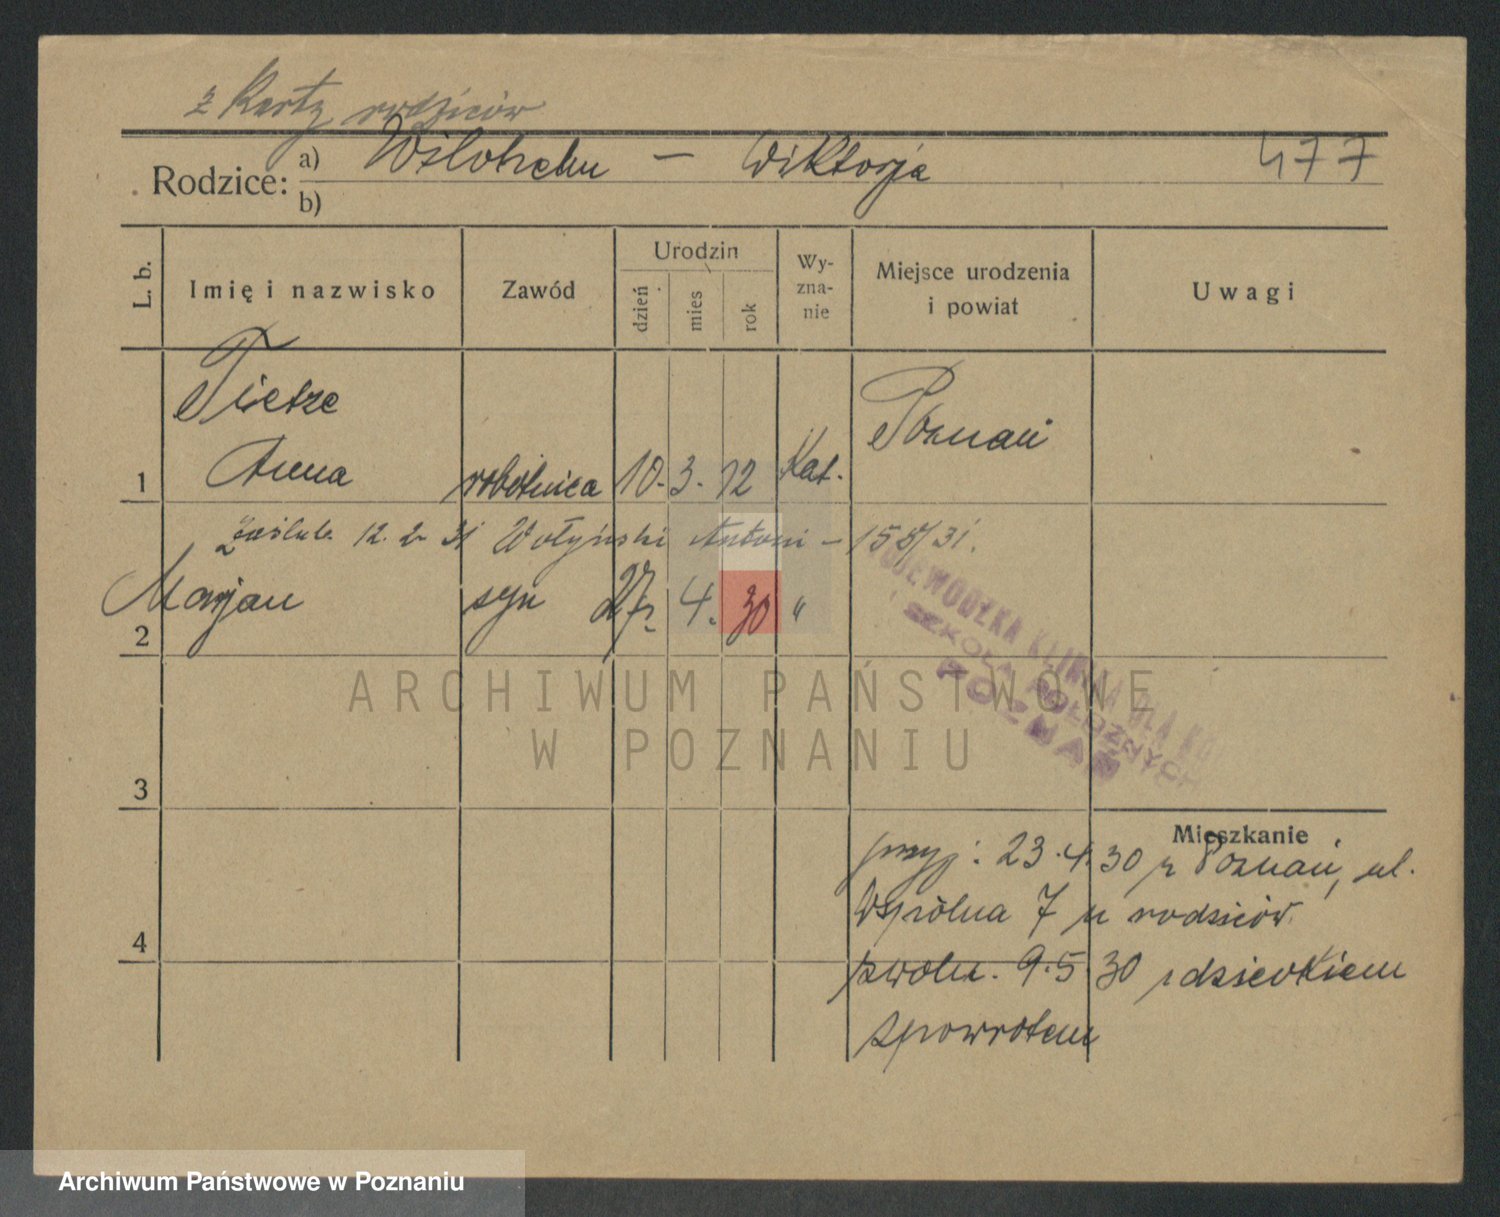 z Karty rodziców
Rodzice: a) – Wiktorja 477
b)
L. b. Imię i nazwisko Zawód Urodzin dzień mies rok Wy-zna-nie Miejsce urodzenia i powiat Uwagi
Tietze Poznań
1 Anna robotnica 10. 3. 12 Kat.
zaślub. 12. 2 31 Wołyński Antoni – 15 5/31.
2 Marjan syn 27. 4. 30 "
WOJEWÓDZKA KLINIKA DLA KO
SZKOŁA POŁOŻNYCH
POZNAŃ
ARCHIWUM PAŃSTWOWE
W POZNANIU
3
Mieszkanie
przyj: 23.4.30 z Poznań, ul.
Wspólna 7 u rodziców
4
zwoln. 9.5.30 z dzieckiem
zpowrotem
Archiwum Państwowe w Poznaniu